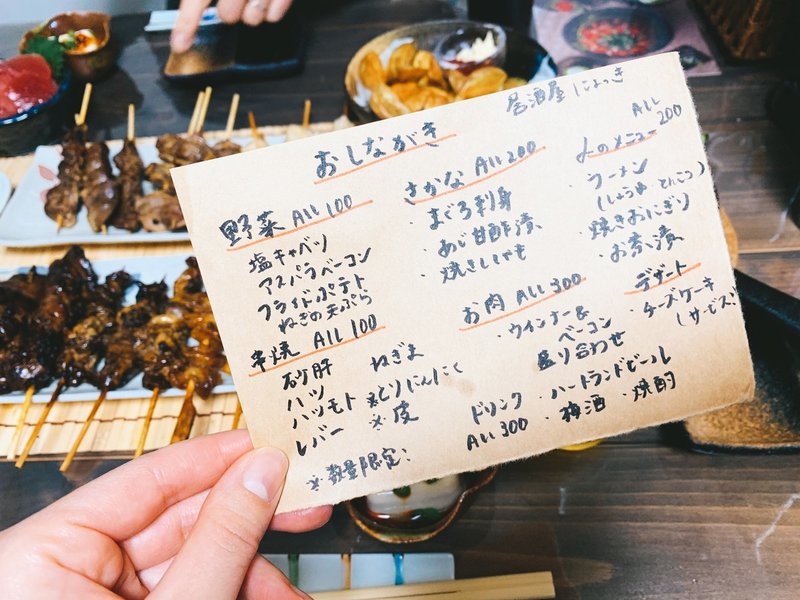 居酒屋 じょっき
おしながき
野菜 All 100
塩キャベツ
アスパラベーコン
フライドポテト
ねぎの天ぷら
串焼 All 100
砂肝
ハツ
ハツモト
レバー
ねぎま
※とりにんにく
※皮
※数量限定:
さかな All 200
・まぐろ刺身
・あじ甘酢漬
・焼きししゃも
お肉 All 300
・ウインナー&
ベーコン
盛り合わせ
ドリンク
All 300
・ハートランドビール
・梅酒 ・焼酎
〆のメニュー
All 200
・ラーメン
(しょうゆ とんこつ)
・焼きおにぎり
・お茶漬
デザート
・チーズケーキ
(サービス)